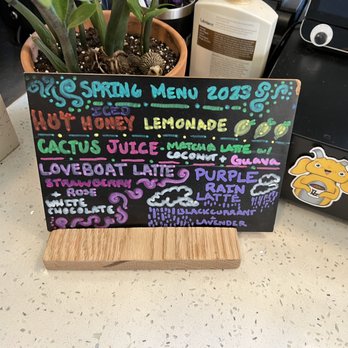 SPRING MENU 2023
ICED
HOT HONEY LEMONADE
CACTUS JUICE MATCHA LATTE W/
COCONUT + GUAVA
LOVEBOAT LATTE
STRAWBERRY
ROSE
WHITE
CHOCOLATE
PURPLE
RAIN
LATTE
BLACKCURRANT
+ LAVENDER